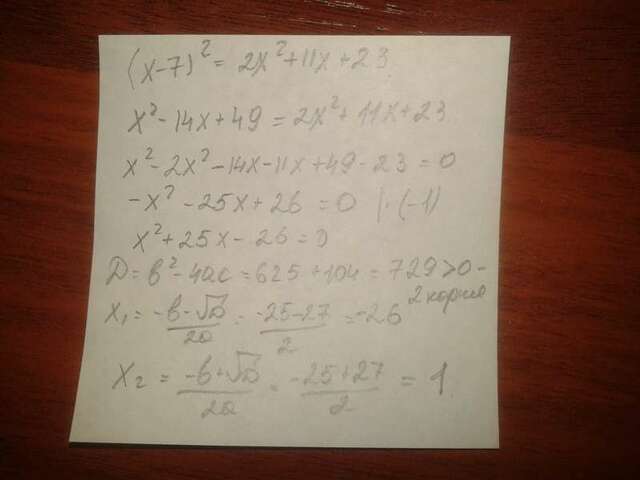 (x-7)² = 2x²+11x+23
x²-14x+49=2x²+11x+23
x²-2x²-14x-11x+49-23=0
-x²-25x+26=0 |·(-1)
x²+25x-26=0
D=b²-4ac=625+104=729>0-
2 корня
x₁ = (-b-√D)/2a = (-25-27)/2 = -26
x₂ = (-b+√D)/2a = (-25+27)/2 = 1